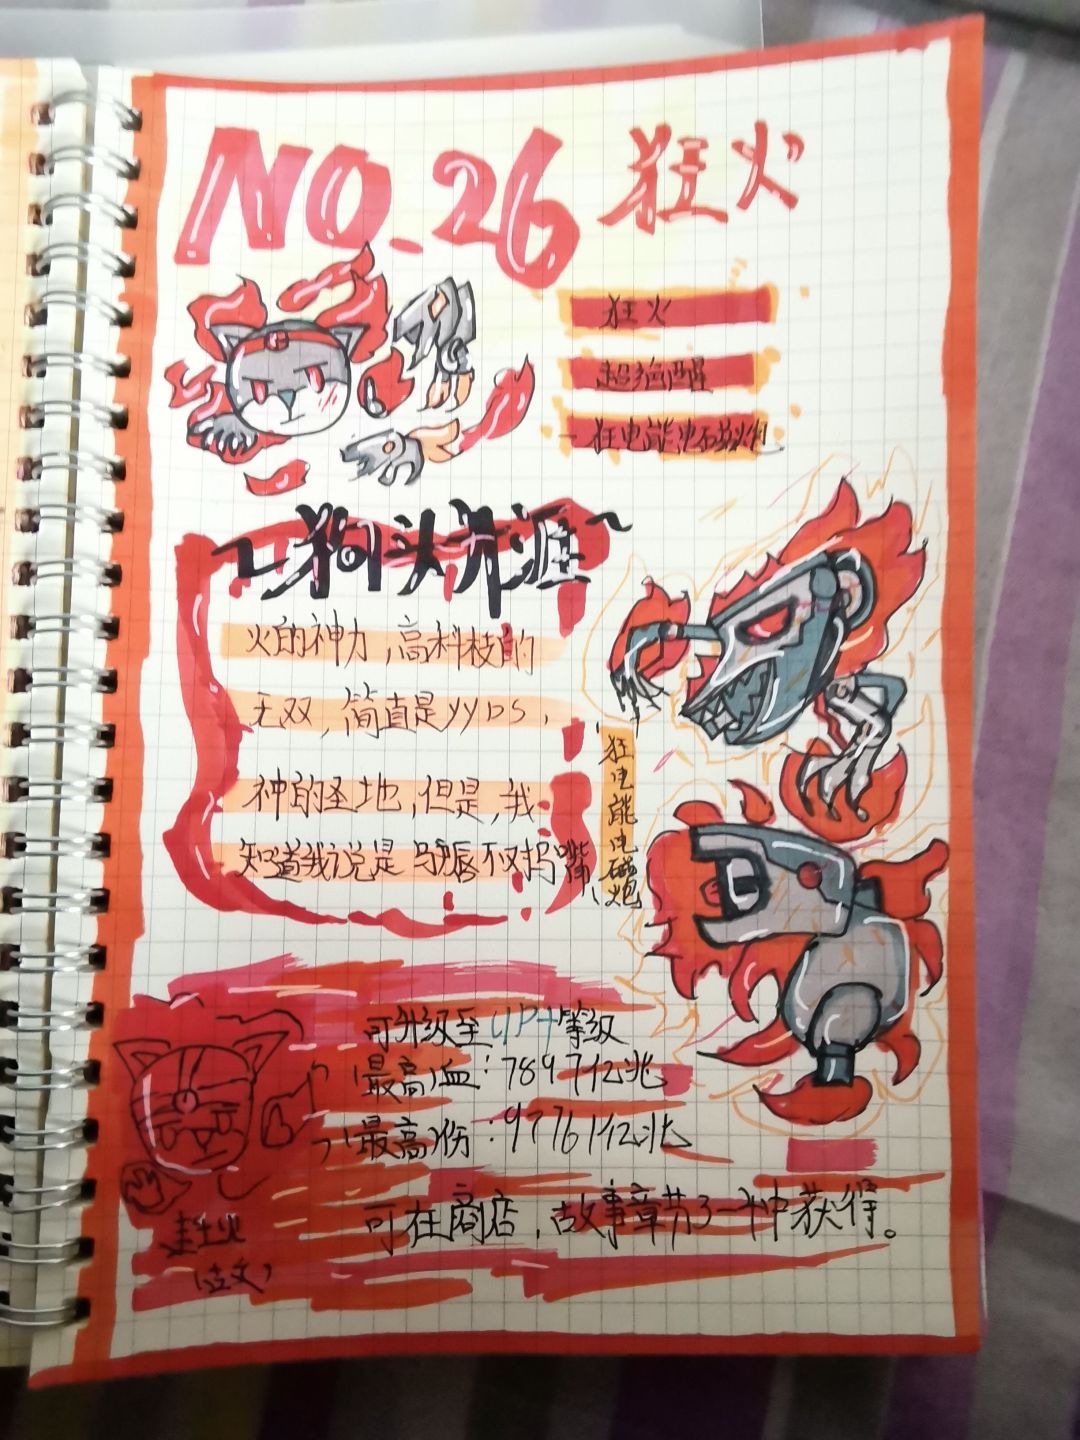 NO.26 狂火
狂火
超狗醒
狂电能电磁炮
狗头光涯
火的神力,高科技的
无双,简直是YYDS,
神的圣地,但是,我
狂电能电磁炮
可升级至UP+等级
最高血:7897亿兆
最高伤:97761亿兆
可在商店,故事章节3-1中获得。
(古文)